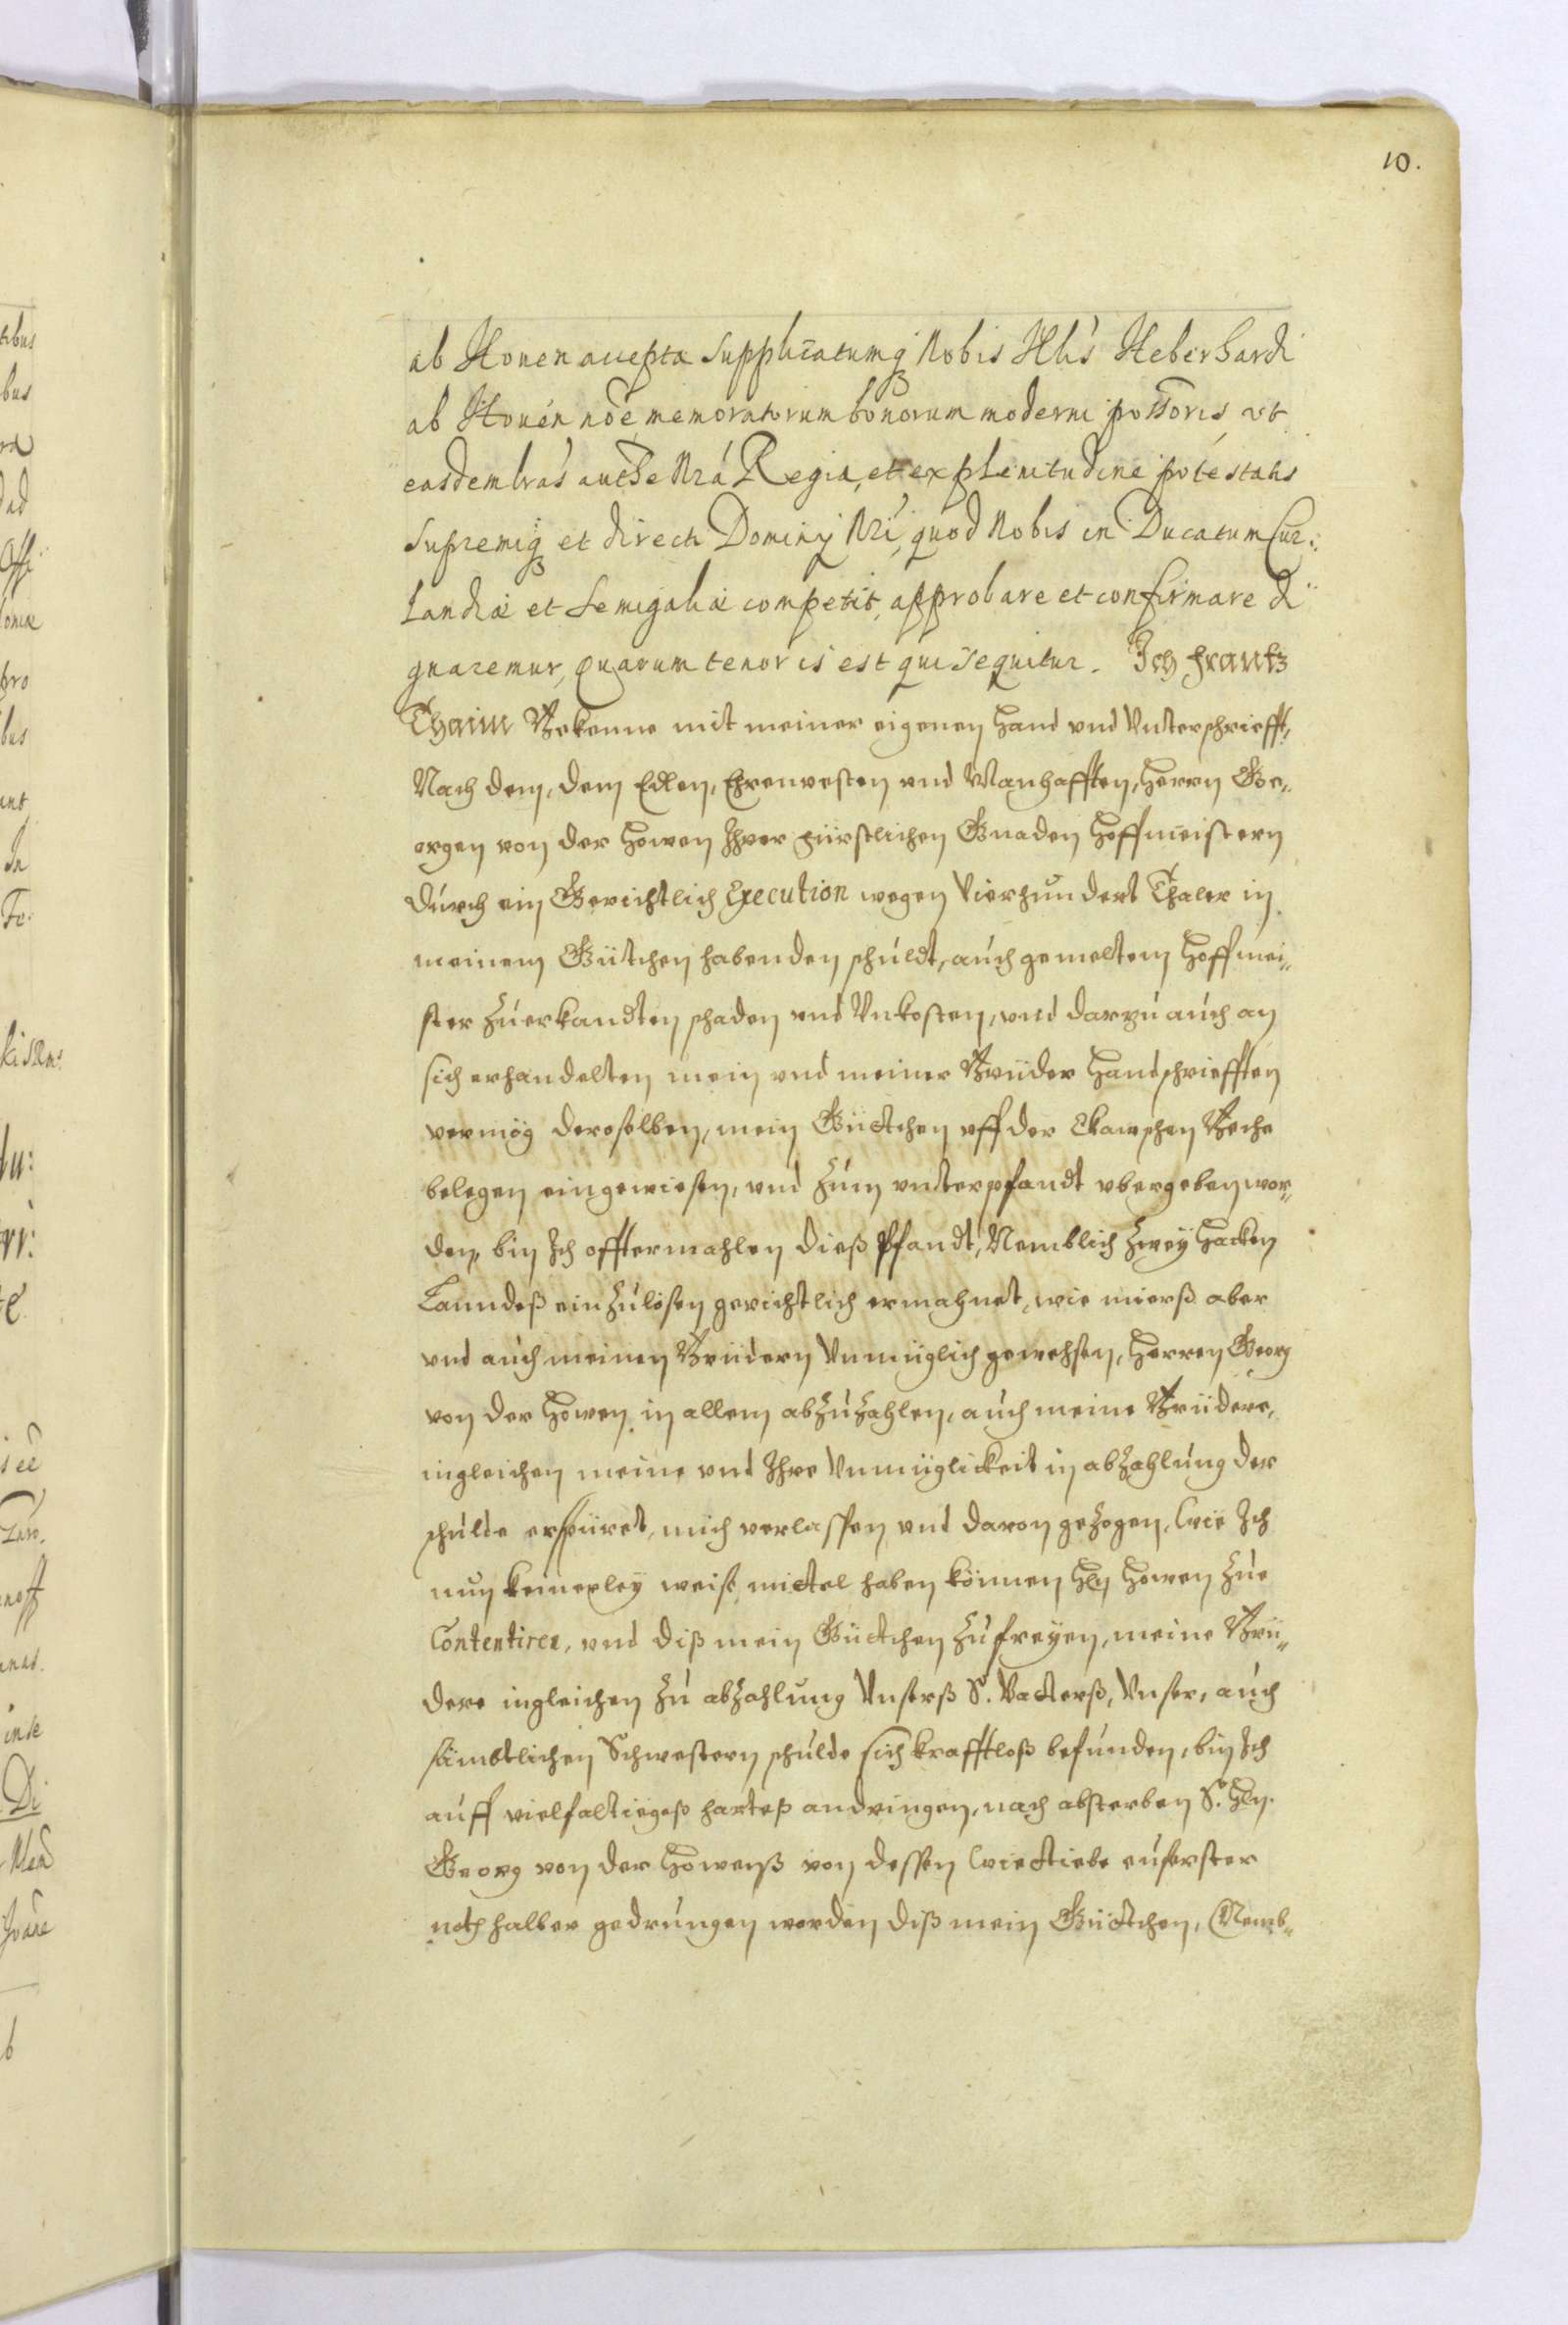 10.
ab Houen accepta Supplicatumq Nobis Hlis Heberhardi
ab Houén noe memoratorum bonorum moderni possoris vt
easdem lras autthe Nra Regia, et ex plenitudine potestatis
Supremiq et directi Dominij Nri, quod Nobis in Ducatum Cur:
landiæ et Semigaliæ competit, approbare et confirmare di
gnaremur, Quarum tenor is est qui sequitur. Ich Frantz
Thaim Bekenne mit meiner eigenen Hand vnd Vnterschriefft,
Nach dem, dem Edlen, Ehrenvesten vnd Manhafften, Herrn Ge„
orgen von der Howen Ihrer Fürstlichen Gnaden Hoffmeistern
durch ein Gerichtlich Execution wegen Vierhundert Thaler in
meinem Gütchen habenden schuldt, auch gemeltem Hoffmei„
ster Zuerkandten schaden vnd Vnkosten, vnd darzu auch an
sich erhandelten mein vnd meiner Brüder Handschriefften
vermög deroselben, mein Güttchen vff der Ekawschen Beche
belegen eingewiesen, vnd Zum vnterpfandt vbergeben wor„
den, bin Ich offtermahlen dieß Pfandt, Nemblich Zweÿ Hacken
Lanndeß einZulösen gerichtlich ermahnet, wie mierß aber
vnd auch meinen Brüdern Vnmüglich gewehsen, Herren Georg
von der Howen in allem abZuZahlen, auch meine Brüdere,
ingleichen meine vnd Ihre Vnmüglickeit in abZahlung der
schulde erspüret, mich verlassen vnd davon geZogen, Wie Ich
nun keinerleÿ weise mittel haben können Hln Howen Zue
Contentiren, vnd diß mein Güttchen Zufreÿen, meine Brü„
dere ingleichen Zu abZahlung Vnserß S. Vatterß, Vnser, auch
sämbtlichen Schwestern schulde sich krafftloß befunden, bin Ich
auff vielfaltiegeß harteß andringen, nach absterben S. Hln.
Georg von der Howenß von dessen Wiettiebe euserster
noth halber gedrungen worden diß mein Güttchen, (Nemb„